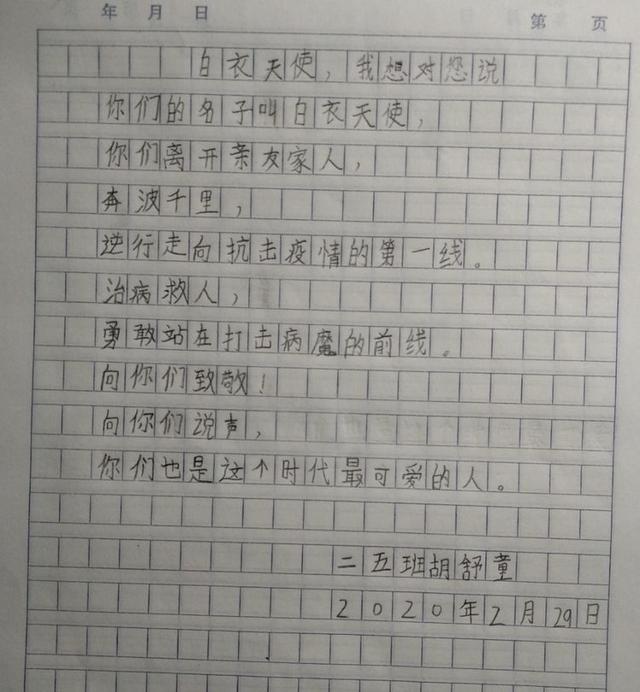 年 月 日 第 页
白衣天使，我想对您说
你们的名子叫白衣天使，
你们离开亲友家人，
奔波千里，
逆行走向抗击疫情的第一线。
治病救人，
勇敢站在打击病魔的前线。
向你们致敬！
向你们说声，
你们也是这个时代最可爱的人。
二五班胡舒童
2020年2月29日